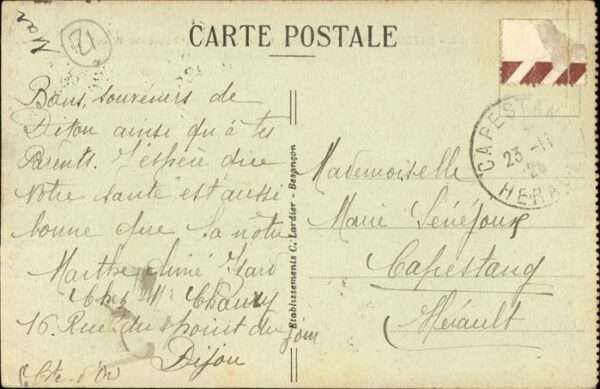 21
CARTE POSTALE
Bons souvenirs de
Dijon ainsi qu'à tes
Parents. J'espère que
Notre santé est aussi
bonne que la nôtre
Marthe Aimé
Chez Mr Chauvy
16 Rue du Point du jour
Dijon
Côte-d'Or
Etablissements C. Lardier - Besançon
CAPESTANG
23 - 11
HERAULT
Mademoiselle
Marie Sénéjoux
Capestang
Hérault